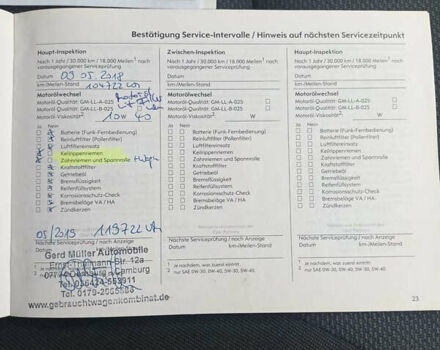 Bestätigung Service-Intervalle / Hinweis auf nächsten Servicezeitpunkt
Haupt-Inspektion
Nach 1 Jahr / 30.000 km / 18.000 Meilen¹ nach
vorausgegangener Serviceprüfung
Datum 09.05.2018
km-/Meilen-Stand 104722 km
Motorölwechsel
Motoröl-Qualität: GM-LL-A-025
Motoröl-Qualität: GM-LL-B-025
Motoröl-Viskosität² 10W 40
Ja Nein
Batterie (Funk-Fernbedienung)
Reinluftfilter (Pollenfilter)
Luftfiltereinsatz
Keilrippenriemen
Zahnriemen und Spannrolle
Kraftstofffilter
Getriebeöl
Bremsflüssigkeit
Reifenfüllsystem
Korrosionsschutz-Check
Bremsbeläge VA / HA
Zündkerzen
05/2019 119722 km
Nächste Serviceprüfung / nach Anzeige
Gerd Müller Automobile
Tel. 0179-2005583
www.gebrauchtwagenkombinat.de
Zwischen-Inspektion
Nach 1 Jahr / 30.000 km / 18.000 Meilen¹ nach
vorausgegangener Serviceprüfung
Datum
km-/Meilen-Stand
Motorölwechsel
Motoröl-Qualität: GM-LL-A-025
Motoröl-Qualität: GM-LL-B-025
Motoröl-Viskosität² W
Ja Nein
Batterie (Funk-Fernbedienung)
Reinluftfilter (Pollenfilter)
Luftfiltereinsatz
Keilrippenriemen
Zahnriemen und Spannrolle
Kraftstofffilter
Getriebeöl
Bremsflüssigkeit
Reifenfüllsystem
Korrosionsschutz-Check
Bremsbeläge VA / HA
Zündkerzen
Nächste Serviceprüfung / nach Anzeige
Datum km-/Meilen-Stand
¹ je nachdem, was zuerst eintritt.
² nur SAE 0W-30, 0W-40, 5W-30, 5W-40.
Haupt-Inspektion
Nach 1 Jahr / 30.000 km / 18.000 Meilen¹ nach
vorausgegangener Serviceprüfung
Datum
km-/Meilen-Stand
Motorölwechsel
Motoröl-Qualität: GM-LL-A-025
Motoröl-Qualität: GM-LL-B-025
Motoröl-Viskosität² W
Ja Nein
Batterie (Funk-Fernbedienung)
Reinluftfilter (Pollenfilter)
Luftfiltereinsatz
Keilrippenriemen
Zahnriemen und Spannrolle
Kraftstofffilter
Getriebeöl
Bremsflüssigkeit
Reifenfüllsystem
Korrosionsschutz-Check
Bremsbeläge VA / HA
Zündkerzen
Nächste Serviceprüfung / nach Anzeige
Datum km-/Meilen-Stand
¹ je nachdem, was zuerst eintritt.
² nur SAE 0W-30, 0W-40, 5W-30, 5W-40.
23